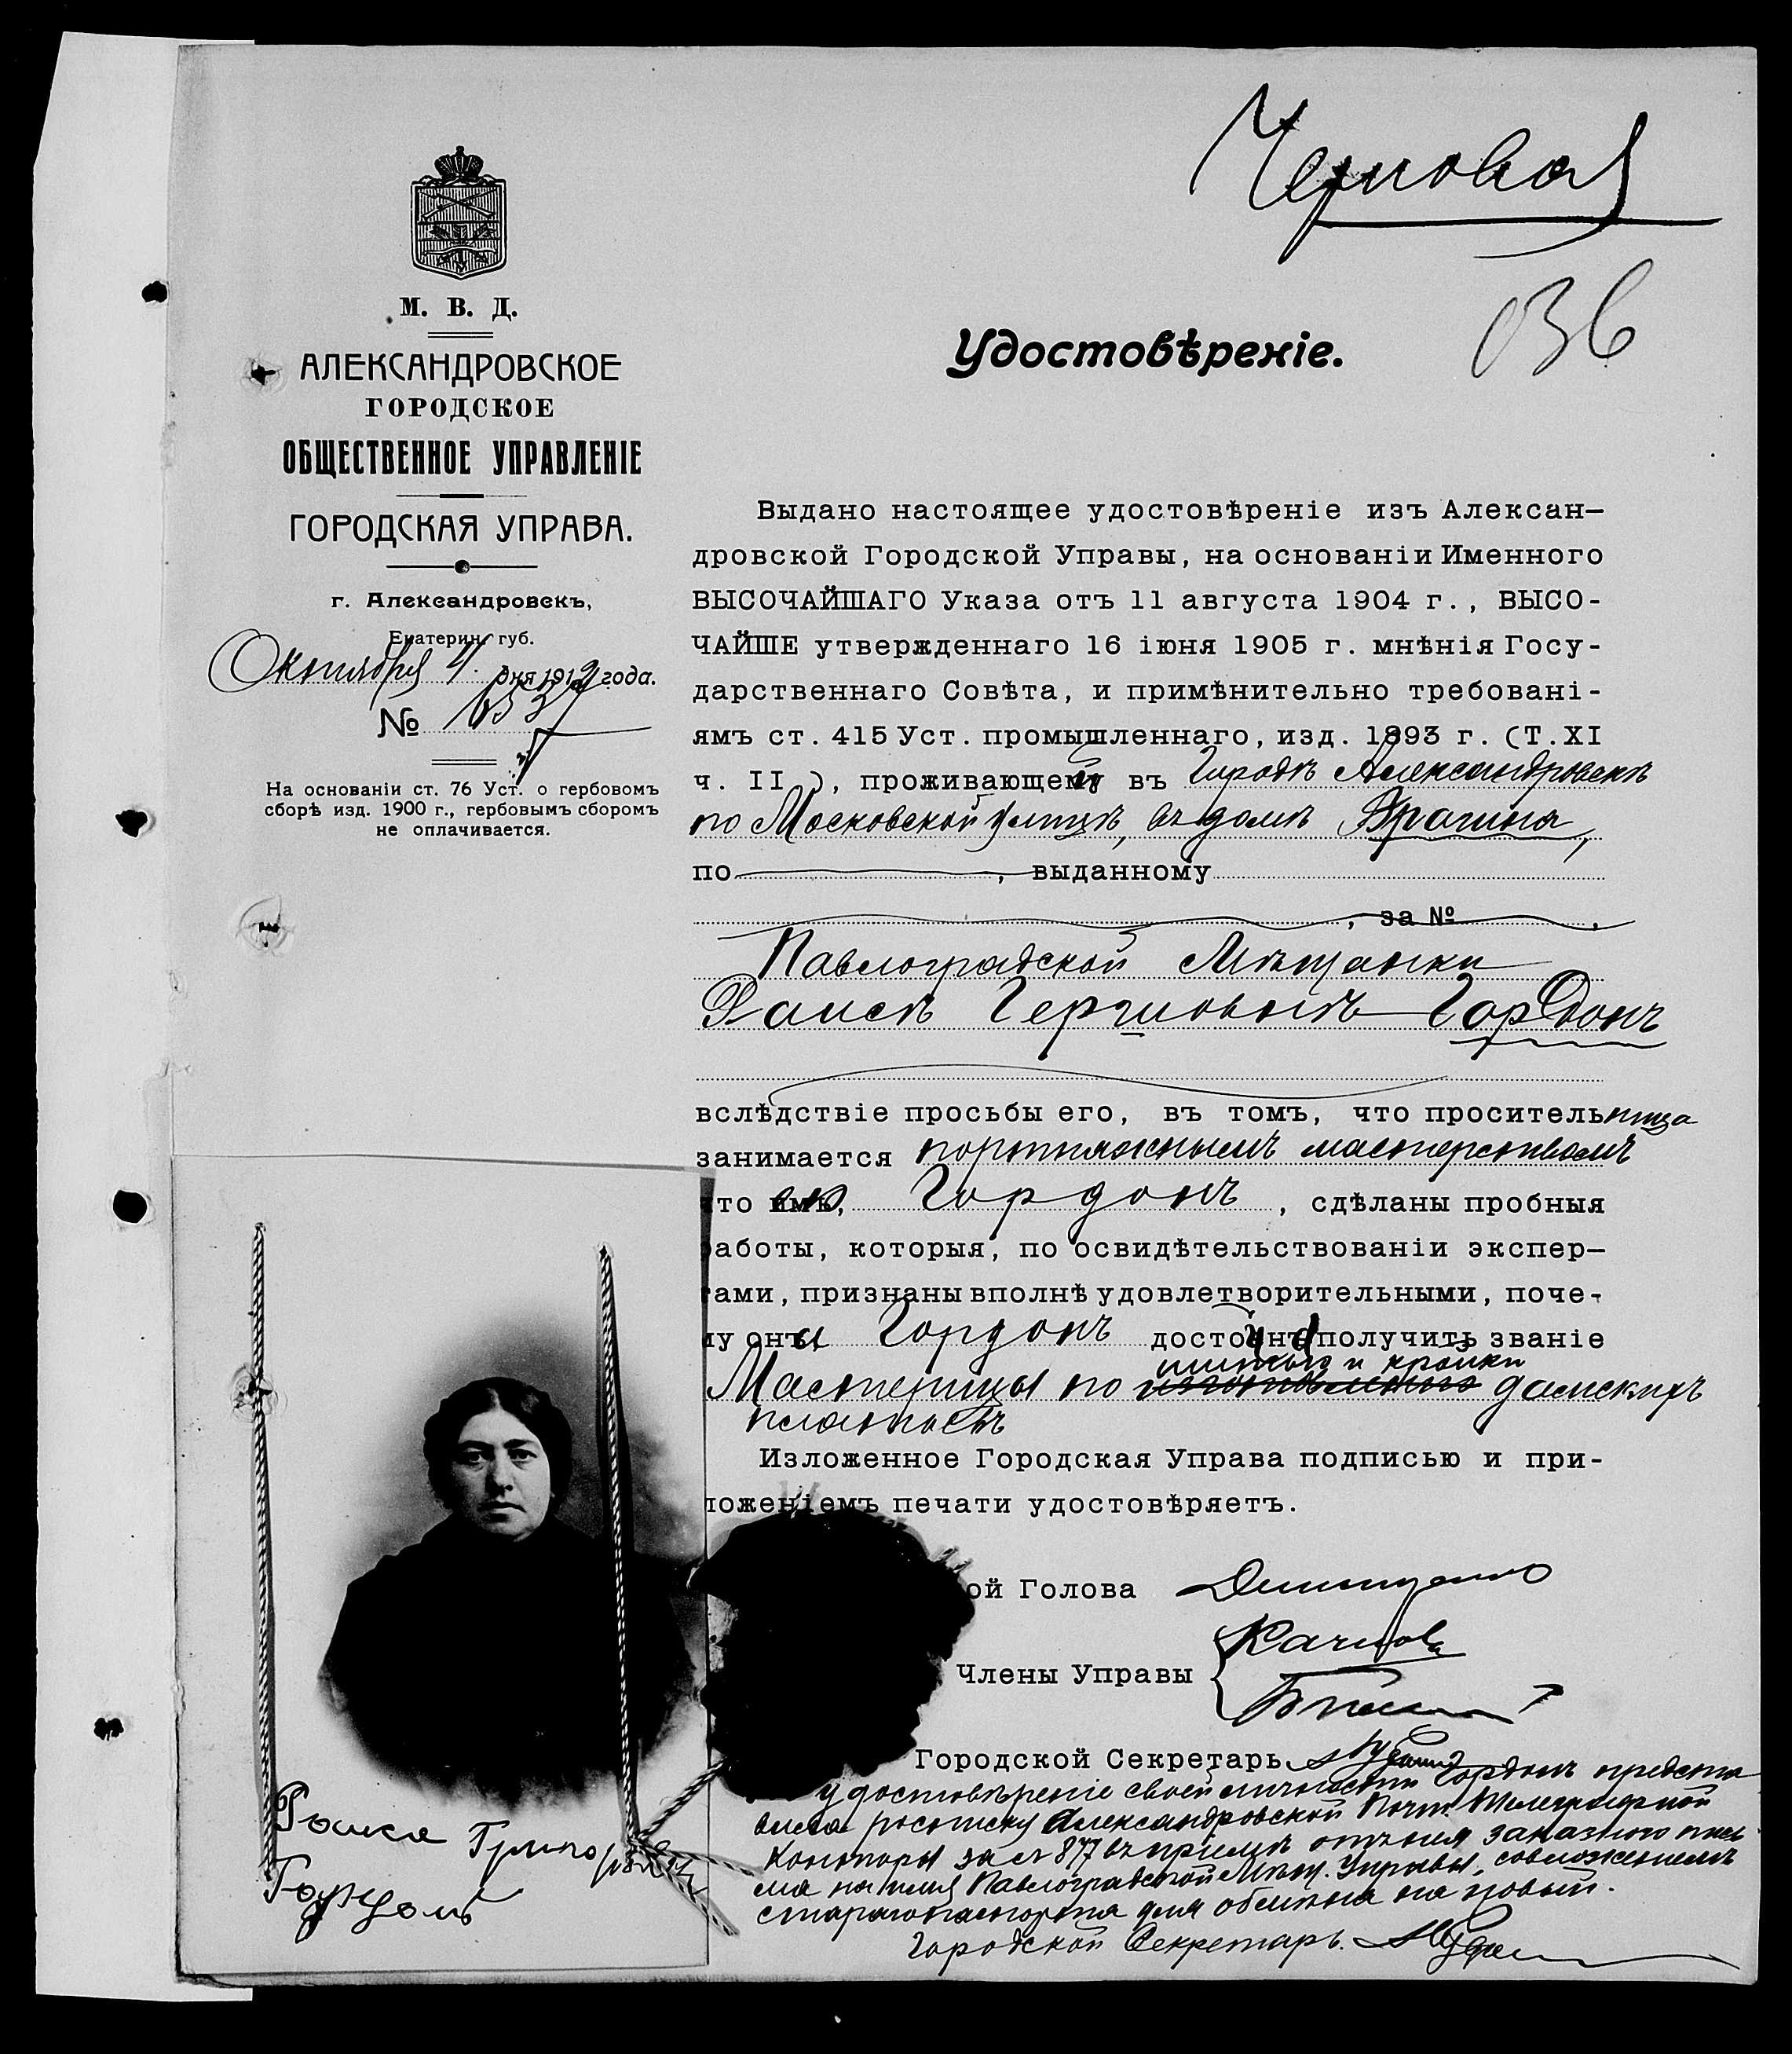 Черновая
036
М. В. Д.
АЛЕКСАНДРОВСКОЕ
ГОРОДСКОЕ
ОБЩЕСТВЕННОЕ УПРАВЛЕНІЕ
ГОРОДСКАЯ УПРАВА.
г. Александровскъ,
Екатерин. губ.
Октября 4 дня 1912 года.
№
На основаніи ст. 76 Уст. о гербовомъ
сборѣ изд. 1900 г., гербовымъ сборомъ
не оплачивается.
Удостовѣреніе.
Выдано настоящее удостовѣреніе изъ Алексан-
дровской Городской Управы, на основаніи Именного
ВЫСОЧАЙШАГО Указа отъ 11 августа 1904 г., ВЫСО-
ЧАЙШЕ утвержденнаго 16 іюня 1905 г. мнѣнія Госу-
дарственнаго Совѣта, и примѣнительно требовані-
ямъ ст. 415 Уст. промышленнаго, изд. 1893 г. (Т. XI
ч. II ), проживающей въ Городѣ Александровскѣ
по Московской улицѣ, въ домѣ Драгина,
по , выданному
, за № .
Павлоградской Мѣщанки
Раисѣ Гершовымъ Гордонъ
вслѣдствіе просьбы его, въ томъ, что просительница
занимается портняжнымъ мастерствомъ
что ею, Гордонъ , сдѣланы пробныя
работы, которыя, по освидѣтельствованіи экспер-
тами, признаны вполнѣ удовлетворительными, поче-
му она Гордонъ достойна получить званіе
шитью и кройки
Мастерицы по изготовленію дамскихъ
платьевъ
Изложенное Городская Управа подписью и при-
ложеніемъ печати удостовѣряетъ.
ой Голова
Члены Управы
Городской Секретарь
удостовѣреніе своей личности Гордонъ предста
вила росписку Александровской Почт. Телеграфной
Конторы за № 877 въ пріемѣ отъ нея заказного пись
ма на имя Павлоградской Мѣщ. Управы, съ вложеніемъ
стараго паспорта для обмѣна на новый.
Городской Секретарь.
Раиса Григорьевна
Гордонъ